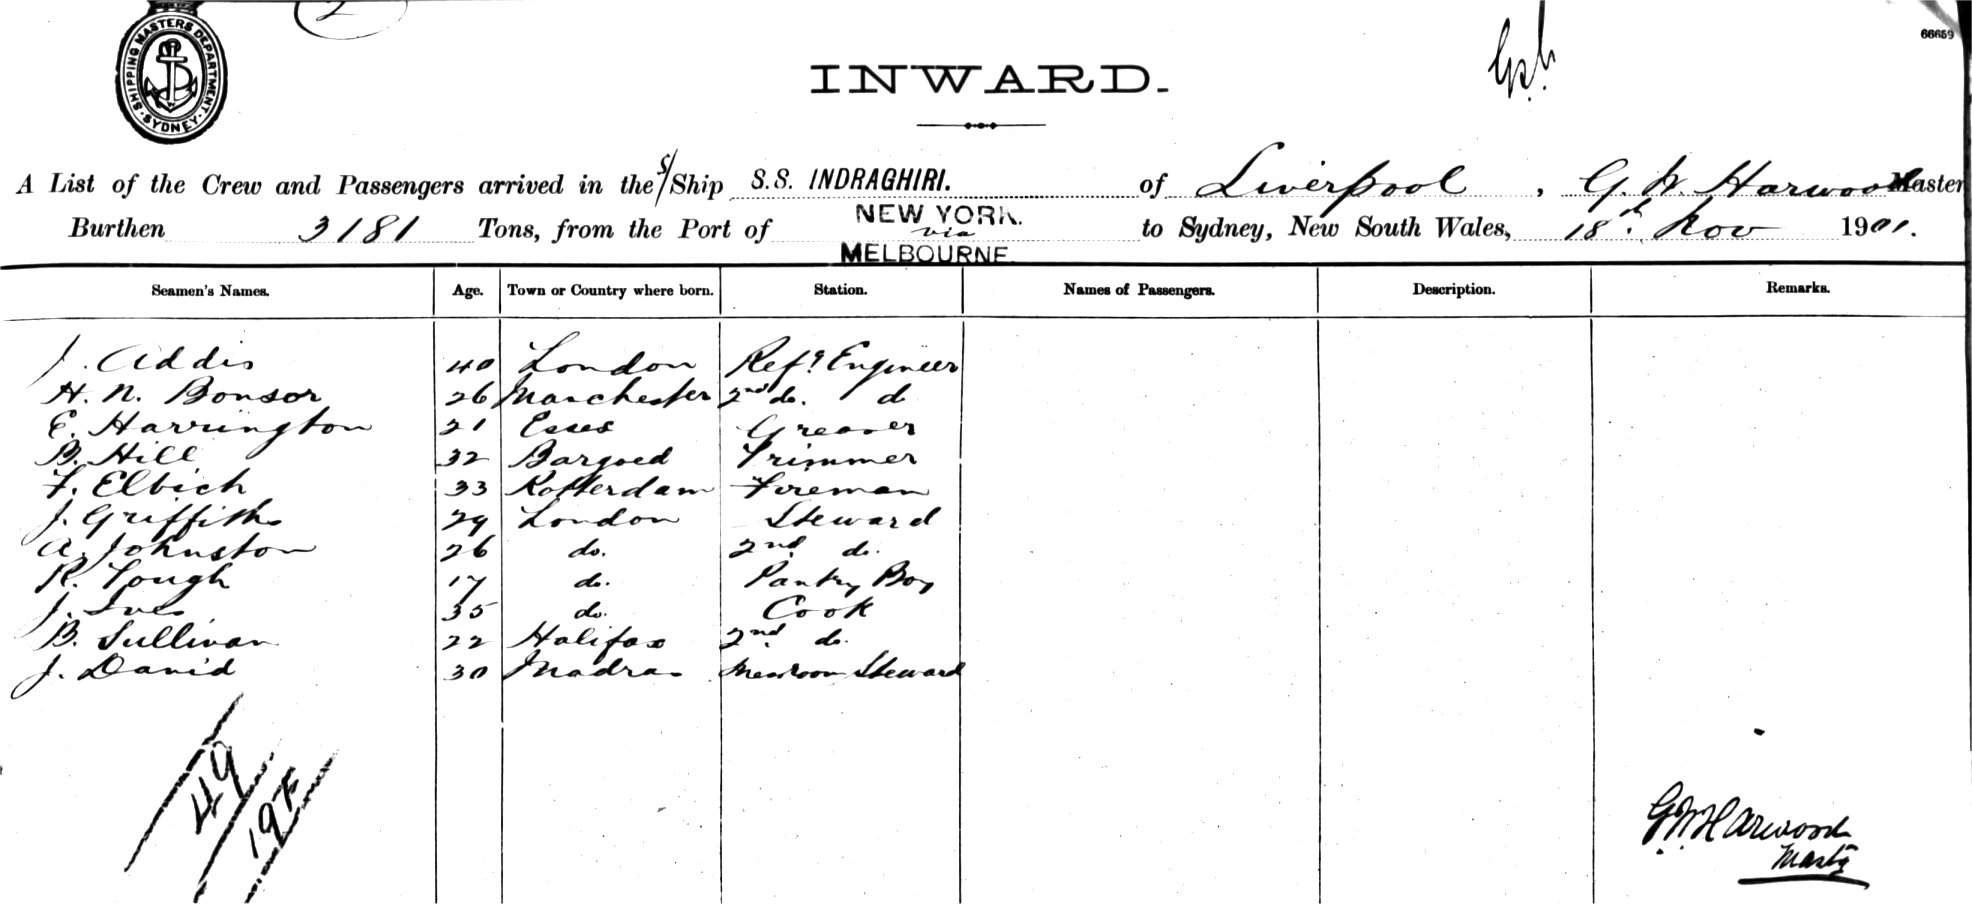 2
SHIPPING MASTERS DEPARTMENT
SYDNEY
66659
INWARD.
A List of the Crew and Passengers arrived in the S/Ship S.S. INDRAGHIRI. of Liverpool, G. W. Harwood Master
Burthen 3181 Tons, from the Port of NEW YORK. via MELBOURNE to Sydney, New South Wales, 18th Nov 1901.
Seamen's Names. Age. Town or Country where born. Station. Names of Passengers. Description. Remarks.
J. Addis 40 London Refg Engineer
H. N. Bonsor 26 Manchester 2nd do. d
E. Harrington 21 Essex Greaser
B. Hill 32 Bargoed Trimmer
F. Elbich 33 Rotterdam Fireman
J. Griffiths 29 London Steward
A. Johnston 26 do. 2nd do.
R. Tough 17 do. Pantry Boy
J. Ives 35 do. Cook
B. Sullivan 22 Halifax 2nd do.
J. David 30 Madras Messroom Steward
49
G W Harwood
Master